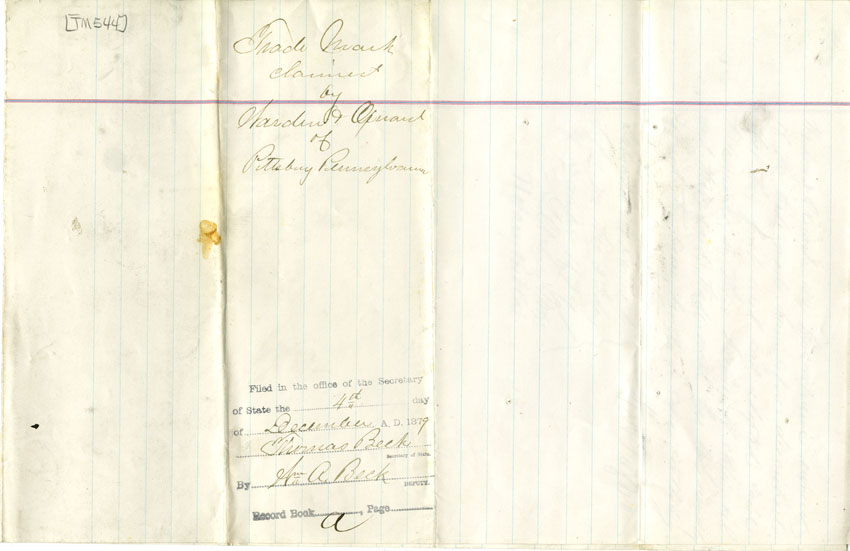 [TM544]
Trade Mark
claimed
by
Warden & Oxnard
of
Pittsburg Pennsylvania
Filed in the office of the Secretary
of State the 4th day
of December A. D. 1879
Thomas Beck
Secretary of State.
By Wm A. Beck
DEPUTY.
Record Book a, Page